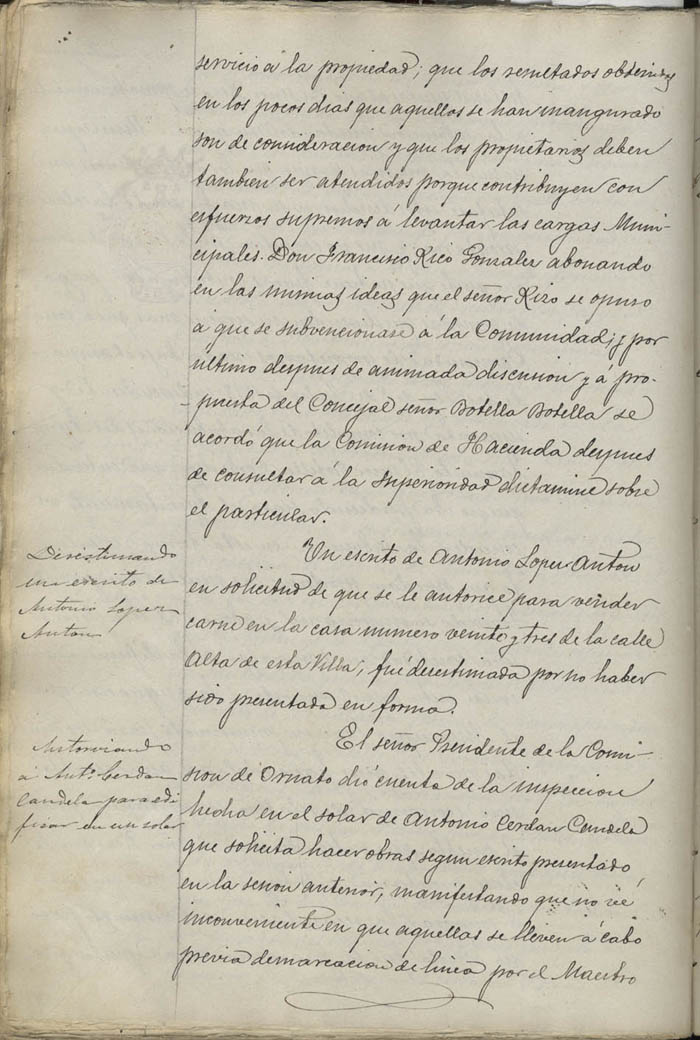 servicio á la propiedad; que los resultados obtenidos
en los pocos dias que aquellos se han inaugurado
son de consideracion y que los propietarios deben
tambien ser atendidos porque contribuyen con
esfuerzos supremos á levantar las cargas Muni-
cipales. Don Francisco Rico Gonzalez abonando
en las mismas ideas que el señor Rizo se opuso
á que se subvencionase á la Comunidad; y por
último despues de animada discusion y á pro-
puesta del Concejal señor Botella Botella se
acordó que la Comision de Hacienda despues
de consultar á la superioridad dictamine sobre
el particular.
Desestimando
un escrito de
Antonio Lopez
Anton
Un escrito de Antonio Lopez Anton
en solicitud de que se le autorice para vender
carne en la casa numero veinte y tres de la calle
Alta de esta Villa, fué desestimada por no haber
sido presentada en forma.
Autorizando
á Antº. Cerdan
Candela para edi
ficar en un solar
El señor Presidente de la Comi-
sion de Ornato dió cuenta de la inspeccion
hecha en el solar de Antonio Cerdan Candela
que solicita hacer obras segun escrito presentado
en la sesion anterior, manifestando que no vé
inconveniente en que aquellas se lleven á cabo
previa demarcacion de linea por el Maestro